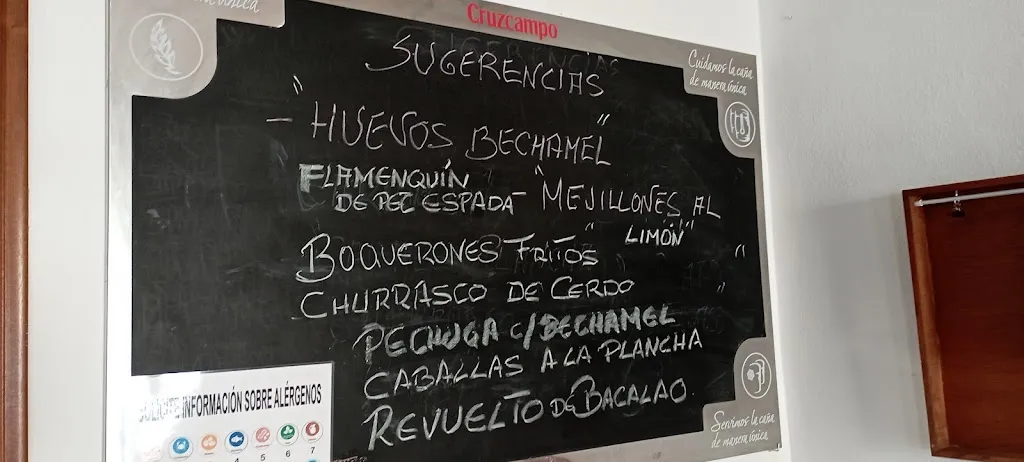 única
Cruzcampo
Cuidamos la caña
de manera única
SUGERENCIAS
- "HUEVOS BECHAMEL"
FLAMENQUÍN
DE PEZ ESPADA - "MEJILLONES AL
LIMÓN"
BOQUERONES FRITOS
CHURRASCO DE CERDO
PECHUGA C/BECHAMEL
CABALLAS A LA PLANCHA
REVUELTO DE BACALAO.
INFORMACIÓN SOBRE ALÉRGENOS
4 5 6 7
Servimos la caña
de manera única